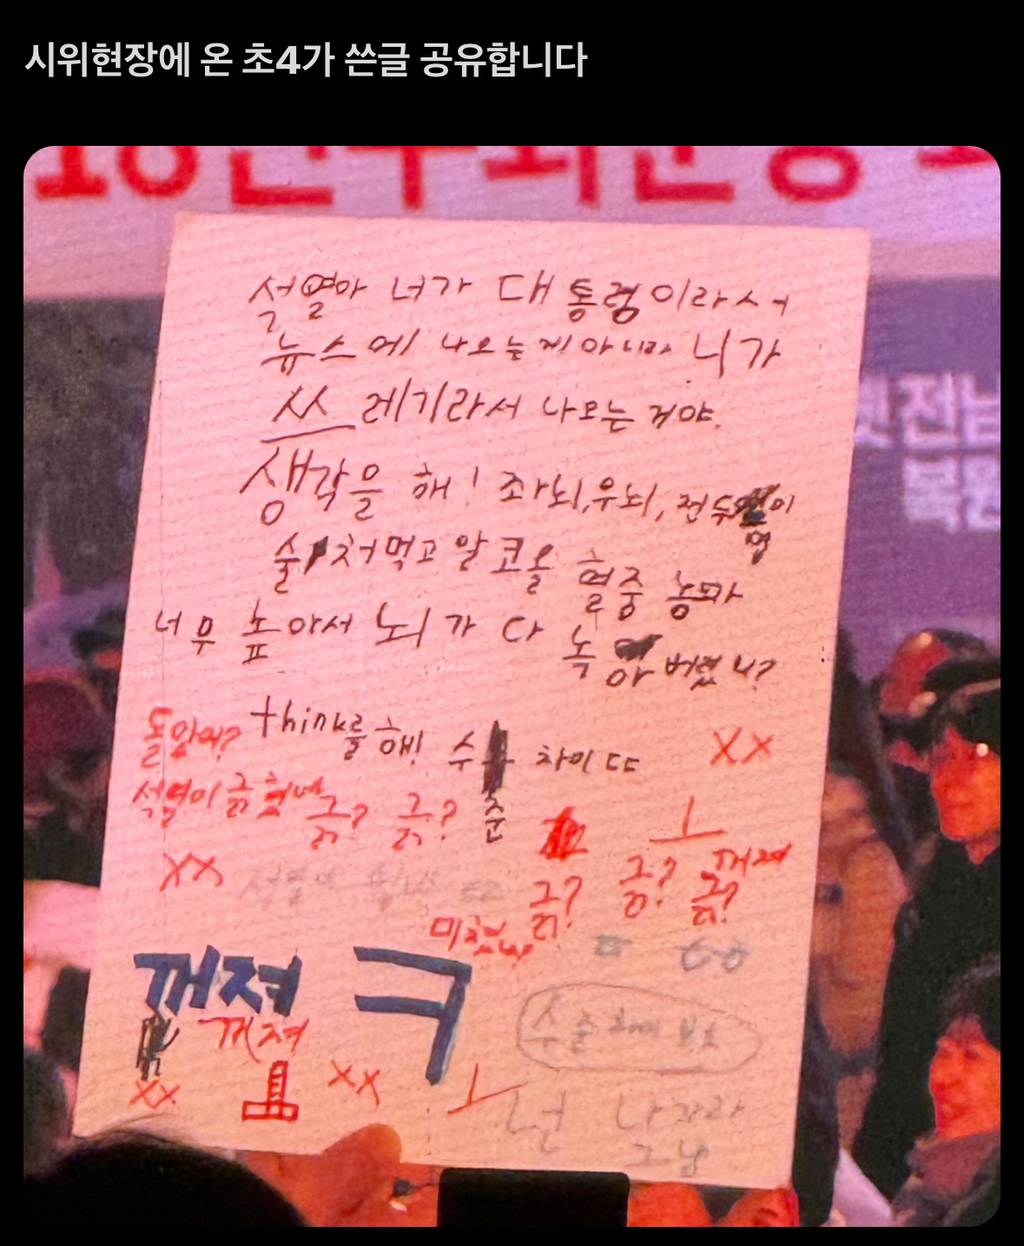 시위현장에 온 초4가 쓴글 공유합니다
석열아 너가 대통령이라서
뉴스에 나오는게 아니라 니가
쓰레기라서 나오는 거야.
생각을 해! 좌뇌, 우뇌, 전두엽이
술 처먹고 알코올 혈중 농도가
너무 높아서 뇌가 다 녹아 버렸니?
think를 해! 수준 차이 ㄸ
돌았어?
XX
석열이 긁혔네
긁? 긁?
XX
긁? 긁? 긁?
꺼져
미쳤냐
꺼져 ㅋ
꺼져
XX
XX
수준 차이 봐
넌 나가라
그냥
전남